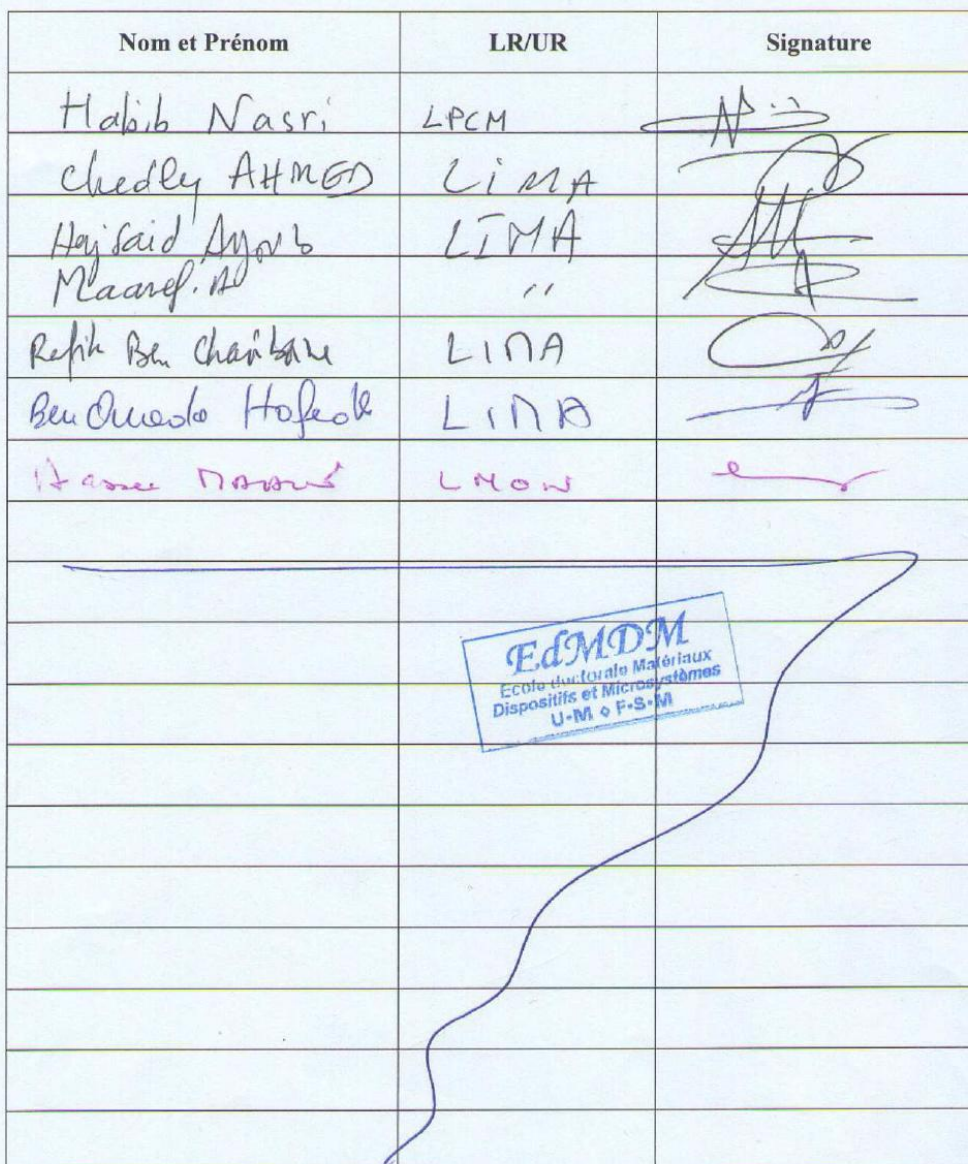 Nom et Prénom LR/UR Signature
Habib Nasri LPCM
Chedly AHMED LiMA
Haj Said Ayoub LIMA
Maaref. A "
Refik Ben Chaâbane LIMA
Ben Ouada Hafedh LIMA
LMON
EdMDM
Ecole doctorale Matériaux
Dispositifs et Microsystèmes
U-M ◊ F-S-M